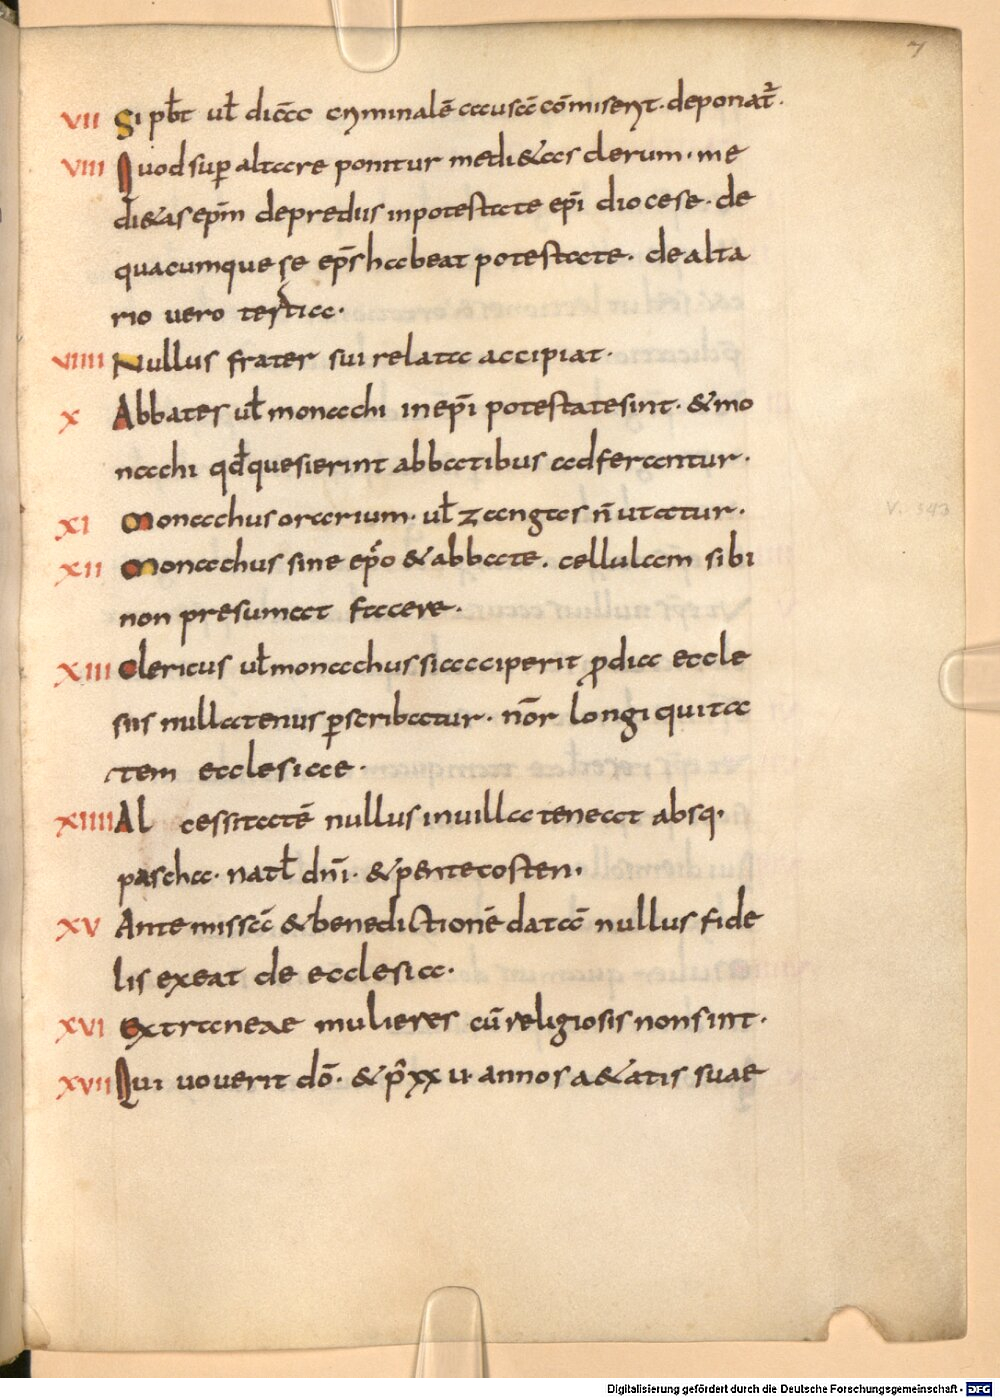 7
VII Si pƀt ul̄ diac̄ criminalē accusac̄ cōmiserit. deponat᷑.
VIII Quod sup altare ponitur medi&as clerum. me
di&as ep̄m depredus inpotestate ep̄i diocese. de
quacumque se ep̄s habeat potestate. de alta
rio vero tertia.
VIIII Nullus frater sui relata accipiat.
X Abbates ul̄ monachi in ep̄i potestate sint. & mo
nachi qd̄ quesierint abbatibus adferantur.
XI Monachus orarium. ul̄ zangas n̄ utatur.
XII Monachus sine ep̄o & abbate. cellulam sibi
non presumat facere.
XIII Clericus ul̄ monachus si acciperit p̄dia eccle
siis nullatenus pscribatur. nōr longiquita
tem ecclesiae.
XIIII Al cessitatē nullus in uilla teneat absq.
pascha. natl̄ dn̄i. & pentecosten.
XV Ante missā & benedictionē datā nullus fide
lis exeat de ecclesia.
XVI Extraneae mulieres cū religiosis non sint.
XVII Qui uouerit dō. & p̂ xx u. annos a&atis suae
V. 343
Digitalisierung gefördert durch die Deutsche Forschungsgemeinschaft - DFG